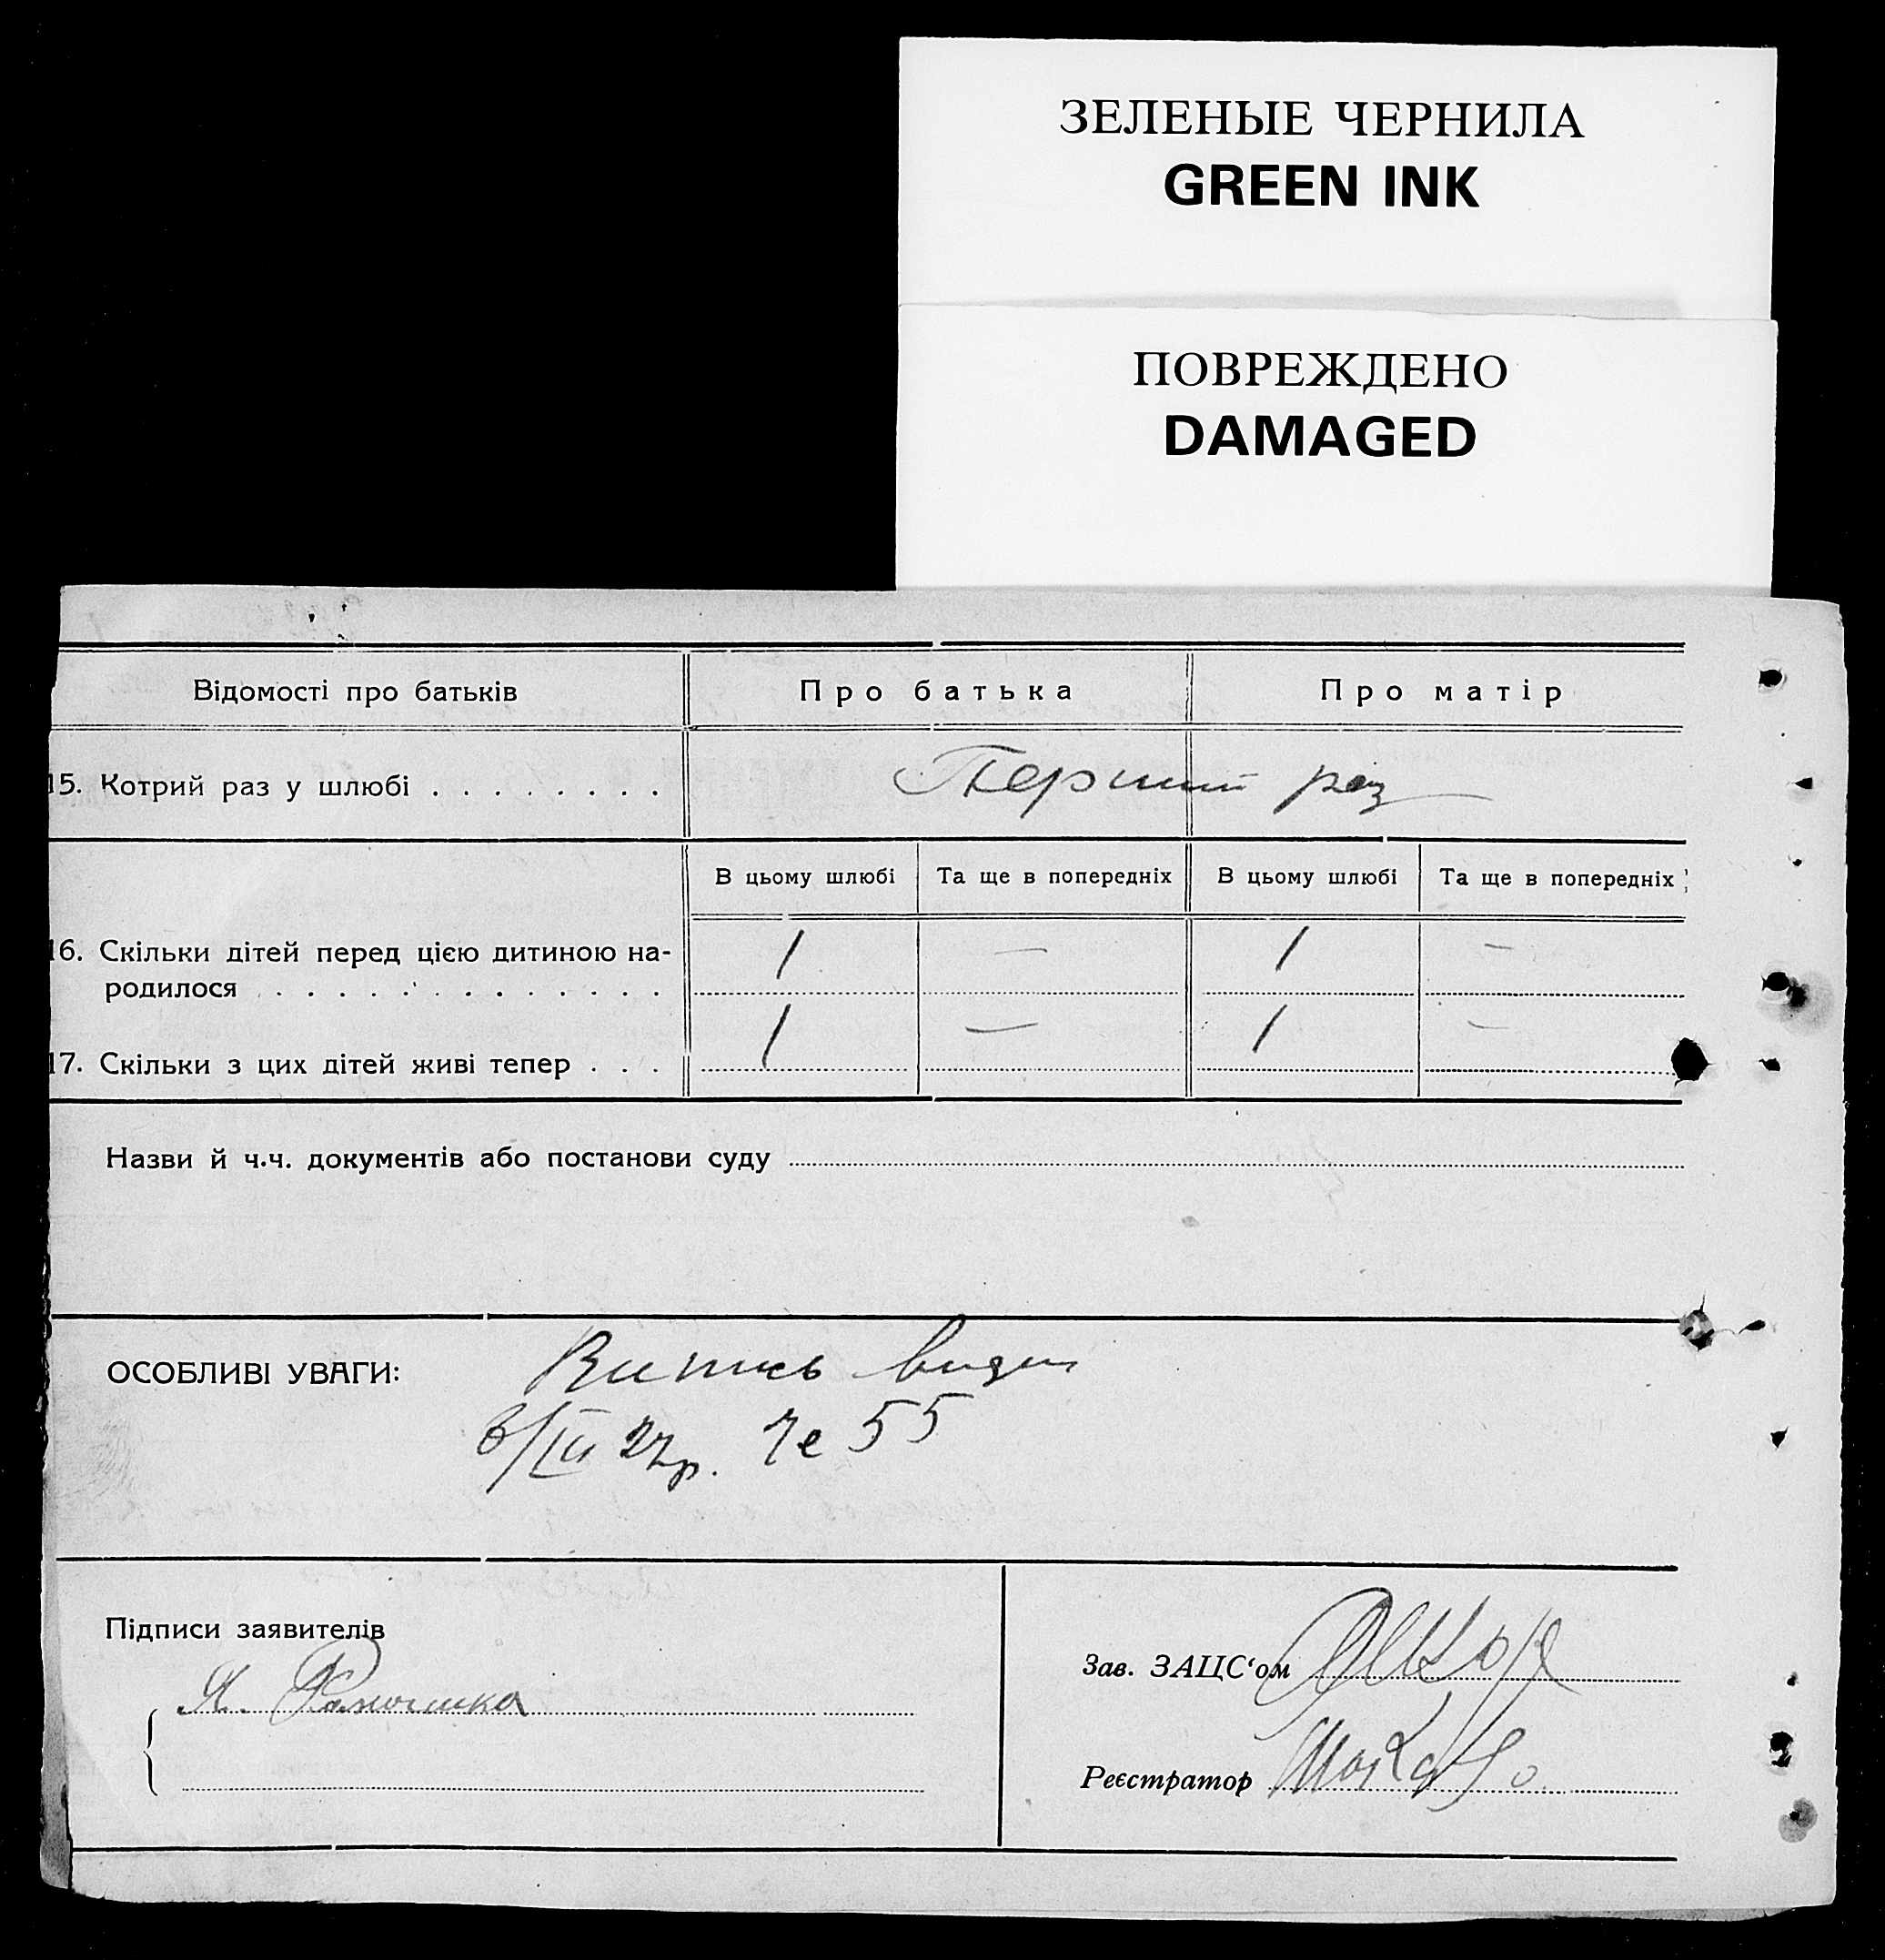 ЗЕЛЕНЫЕ ЧЕРНИЛА
GREEN INK
ПОВРЕЖДЕНО
DAMAGED
Відомості про батьків Про батька Про матір
15. Котрий раз у шлюбі . . . . . . . . Перший раз
В цьому шлюбі Та ще в попередніх В цьому шлюбі Та ще в попередніх
16. Скільки дітей перед цією дитиною на-
родилося . . . . . . . . . . . . . . 1 — 1 —
17. Скільки з цих дітей живі тепер . . . 1 — 1 —
Назви й ч.ч. документів або постанови суду
ОСОБЛИВІ УВАГИ: Випись видан
6/III 27р. Че 55
Підписи заявителів
Зав. ЗАЦС‘ом
Реєстратор